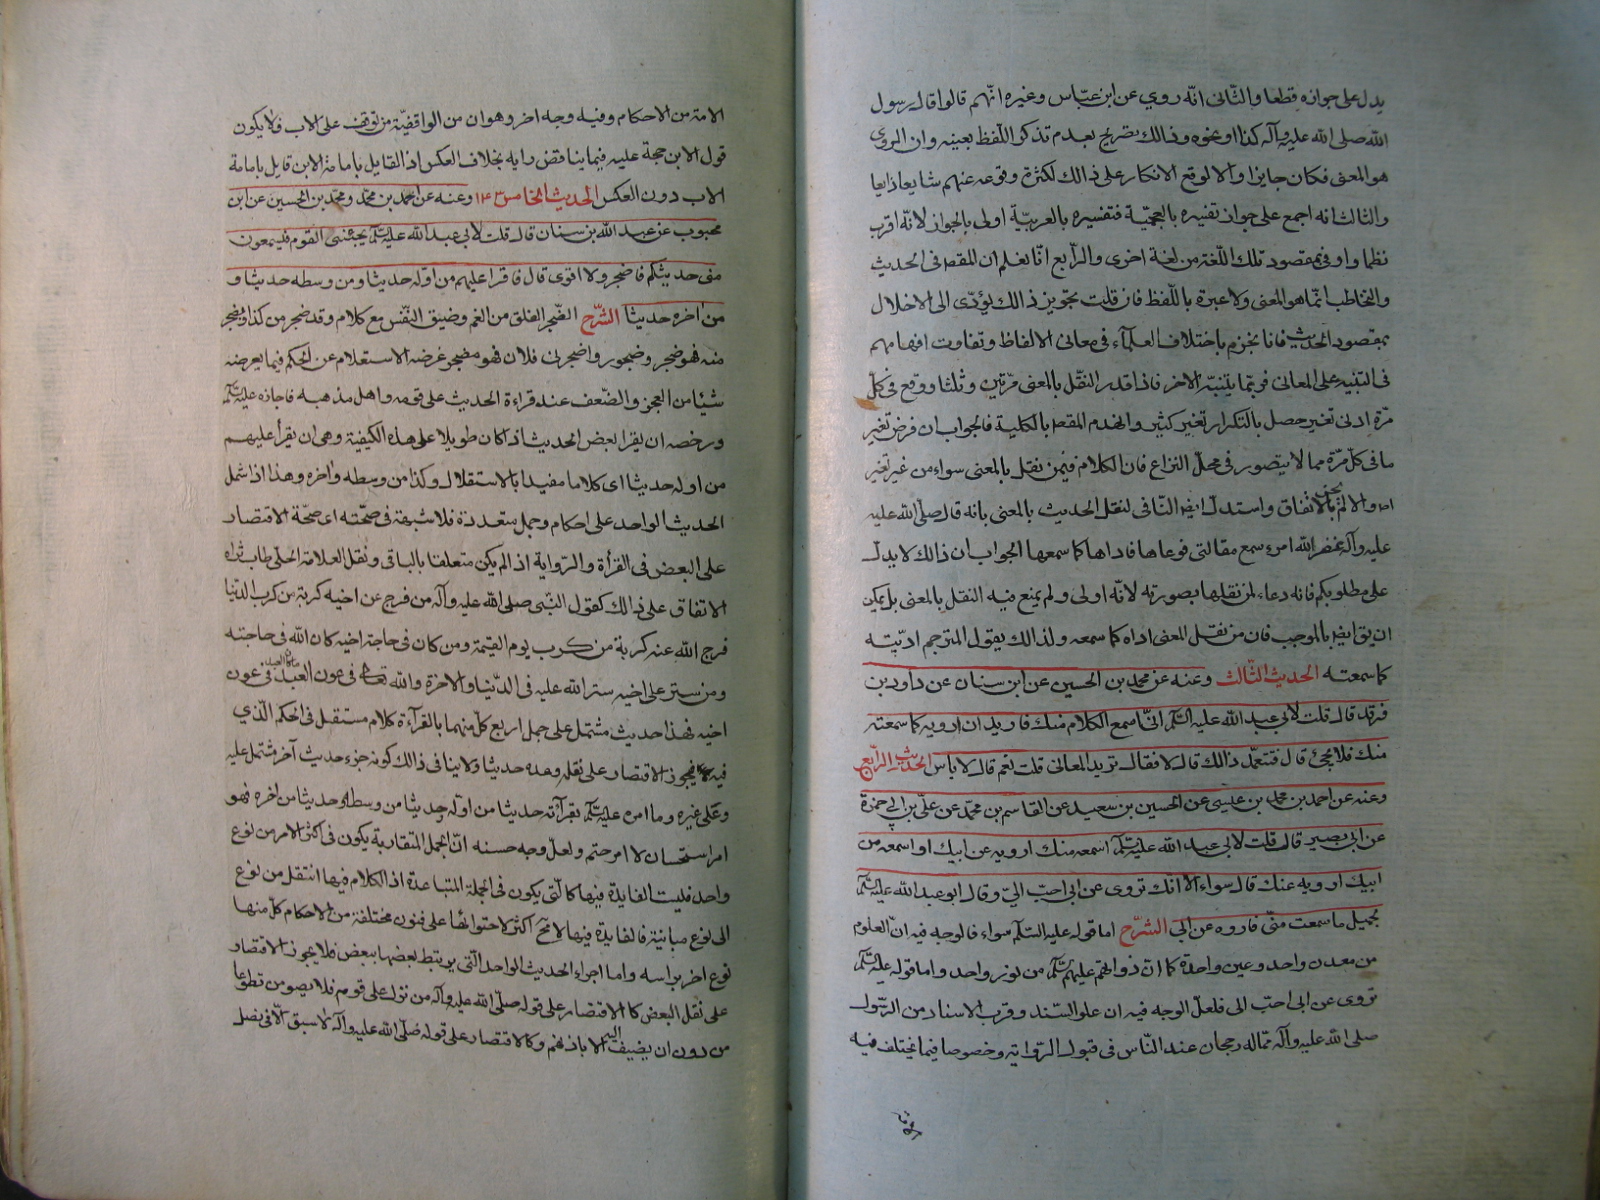 يدل على جوازه قطعا والثانى انّه روي عن ابن عبّاس وغيره انّهم قالوا قال رسول
الله صلى الله عليه وآله كذا او نحوه وذلك تصريح بعدم تذكر اللّفظ بعينه وان المروى
هو المعنى فكان جايزا والا لوقع الانكار على ذلك لكثرة وقوعه عنهم شايعا ذايعا
والثالث انه اجمع على جواز تفسيره بالعجميّة فتفسيره بالعربيّة اولى بالجواز لانّه اقرب
نظما واوفى بمقصود تلك اللّغة من لغة اخرى والرّابع انّا نعلم ان المقصد فى الحديث
والتخاطب انّما هو المعنى ولا عبرة باللّفظ فان قلت تجويز ذلك يؤدّى الى الاخلال
بمقصود الحديث فانا نجزم باختلاف العلمآء فى معانى الالفاظ وتفاوت افهامهم
فى التنبيه على المعانى فربّما يتنبّه الاخر فاذا قدر النّقل بالمعنى مرّتين وثلثا ووقع فى كلّ
مرّة ادنى تغير حصل بالتكرار تغير كثير وانهدم المقصد بالكلية فالجواب ان فرض تغير
ما فى كلّ مرّة مما لا يتصور فى محلّ النزاع فان الكلام فيمن نقل بالمعنى سواء من غير تغير
والا لم يجز بالاتفاق واستدلّ ايض النّافى لنقل الحديث بالمعنى بانه قال صلّى الله عليه
عليه وآله نضر الله امرء سمع مقالتى فوعاها فاداها كما سمعها الجواب ان ذلك لا يدلّ
على مطلوبكم فانه دعاء لمن نقلها بصورته لانّه اولى ولم يمنع فيه النقل بالمعنى بل يمكن
ان يق ايض بالموجب فان من نقل المعنى اداه كما سمعه ولذلك يقول المترجم ادّيته
كما سمعته الحديث الثّالث وعنه عن محمد بن الحسين عن ابن سنان عن داود بن
فرقد قال قلت لابى عبد الله عليه السّلم انّى اسمع الكلام منك فاريد ان ارويه كما سمعته
منك فلا يجئ قال فتتعمّد ذلك قال لا فقال تريد المعانى قلت نعم قال لا باس الحديث الرّابع
وعنه عن احمد بن محمد بن عيسى عن الحسين بن سعيد عن القاسم بن محمّد عن علىّ بن ابى حمزة
عن ابى بصير قال قلت لابى عبد الله عليه السّلم اسمعه منك ارويه عن ابيك او اسمعه من
ابيك ارويه عنك قال سواء الّا انّك تروى عن ابى احبّ الىّ وقال ابو عبد الله عليه السّلم
لجميل ما سمعت منّى فاروه عن ابى الشّرح اما قوله عليه السّلم سواء فالوجه فيه انّ العلوم
من معدن واحد وعين واحدة كما انّ ذواتهم عليهم السّلم من نور واحد واما قوله عليه السّلم
تروى عن ابى احبّ الى فلعلّ الوجه فيه ان علو السّند وقرب الاسناد من الرّسول
صلى الله عليه وآله ممّا له رجحان عند النّاس فى قبول الرّواية وخصوصا فيما يختلف فيه
الامة من الاحكام وفيه وجه اخر وهو ان من الواقفيّة من توقف على الاب فلا يكون
قول الابن حجة عليه فيما يناقض رايه بخلاف العكس اذ القايل بامامة الابن قايل بامامة
الاب دون العكس الحديث الخامس وعنه عن احمد بن محمّد ومحمّد بن الحسين عن ابن
محبوب عن عبد الله بن سنان قال قلت لابى عبد الله عليه السّلم يجيئنى القوم فيسمعون
منى حديثكم فاضجر ولا اقوى قال فاقرا عليهم من اوّله حديثا ومن وسطه حديثا و
من اخره حديثا الشّرح الضّجر القلق من الغم وضيق النّفس مع كلام وقد ضجر من كذا وتضجر
منه فهو ضجر وضجور واضجرنى فلان فهو مضجر غرضه الاستعلام عن الحكم فيما يعرضه
شيئا من العجز والضّعف عند قراءة الحديث على قومه واهل مذهبه فاجازه عليه السّلم
ورخصه ان يقرا بعض الحديث اذا كان طويلا على هذه الكيفية وهى ان يقرأ عليهم
من اوله حديثا اى كلاما مفيدا بالاستقلال وكذا من وسطه واخره وهذا اذا شمل
الحديث الواحد على احكام وجمل متعددة فلا شبهة فى صحّته اى صحّة الاقتصار
على البعض فى القرأة والرّواية اذا لم يكن متعلقا بالباقى ونقل العلامة الحلى طاب ثراه
الاتفاق على ذلك كقول النّبى صلى الله عليه وآله من فرج عن اخيه كربة من كرب الدّنيا
فرج الله عنه كربة من كرب يوم القيمة ومن كان فى حاجة اخيه كان الله فى حاجته
ومن ستر على اخيه ستر الله عليه فى الدّنيا والاخرة والله تعالى فى عون العبد ما دام العبد فى عون
اخيه فهذا حديث مشتمل على جمل اربع كلّ منهما بالقرآءة كلام مستقل فى الحكم الّذي
فيه فيجوز الاقتصار على نقله وحده حديثا ولا ينافى ذلك كونه جزء حديث آخر شتمل عليه
وعلى غيره وما امره عليه السّلم بقرآئته حديثا من اوّله حديثا من وسطه وحديثا من اخره فهو
امر استحسان لا امر حتم ولعلّ وجه حسنه انّ الجمل المتقاربة يكون فى اكثر الامر من نوع
واحد فليست الفايدة فيها كالّتى يكون فى الجملة المتباعدة اذ الكلام فيها انتقل من نوع
الى نوع مباينة فالفايدة فيها لا مح اكثر لاحتوائها على فنون مختلفة من الاحكام كلّ منها
نوع اخر براسه واما اجزاء الحديث الواحد الّتى يرتبط بعضها ببعض فلا يجوز الاقتصار
على نقل البعض كالاقتصار على قوله صلّى الله عليه وآله من نزل على قوم فلا يصومن تطوعا
من دون ان يضيف اليه الا باذنهم وكالاقتصار على قوله صلّى الله عليه وآله لا سبق الّا فى نصل